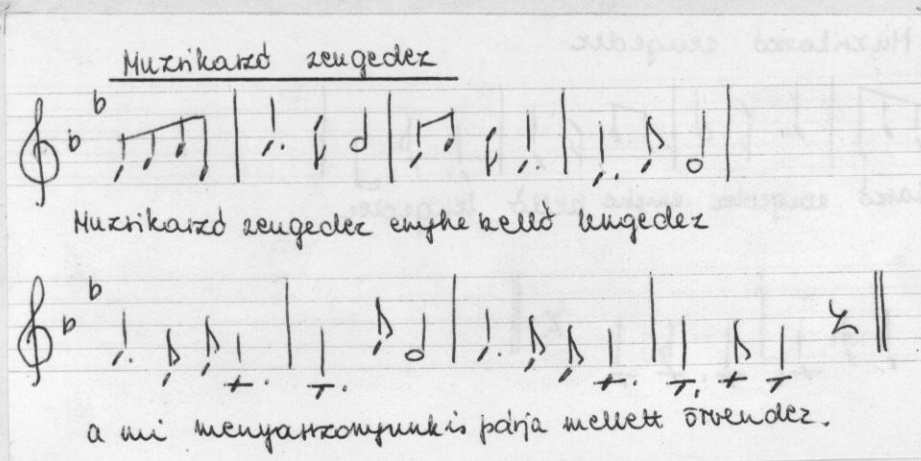 Muzsikaszó zengedez
Muzsikaszó zengedez enyhe kellő lengedez
a mi menyasszonyunk is párja mellett örvendez.